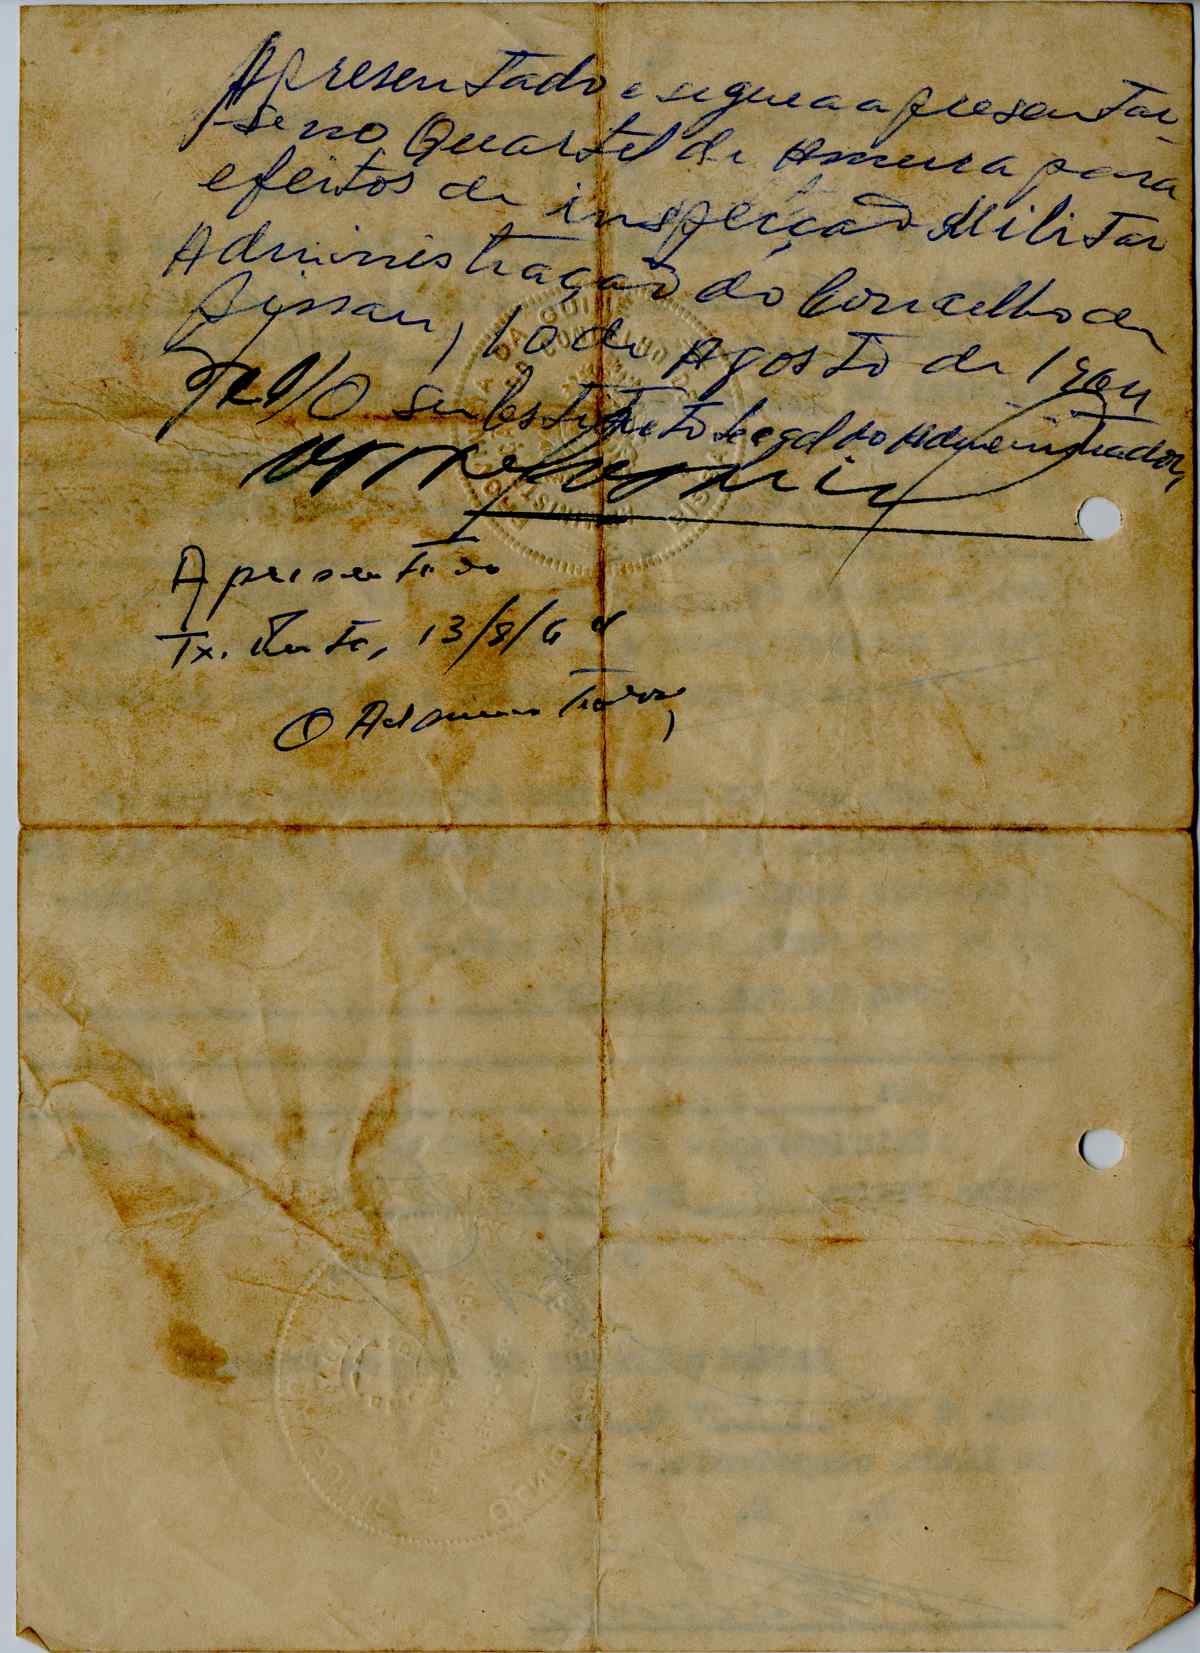 Apresentado e segue a apresentar-
se no Quartel da Amura para
efeitos de inspecção Militar
Administração do Concelho de
Bissau, 10 de Agosto de 1964
O substituto Legal do Administrador,
Apresentado
13/8/64
O Administrador,